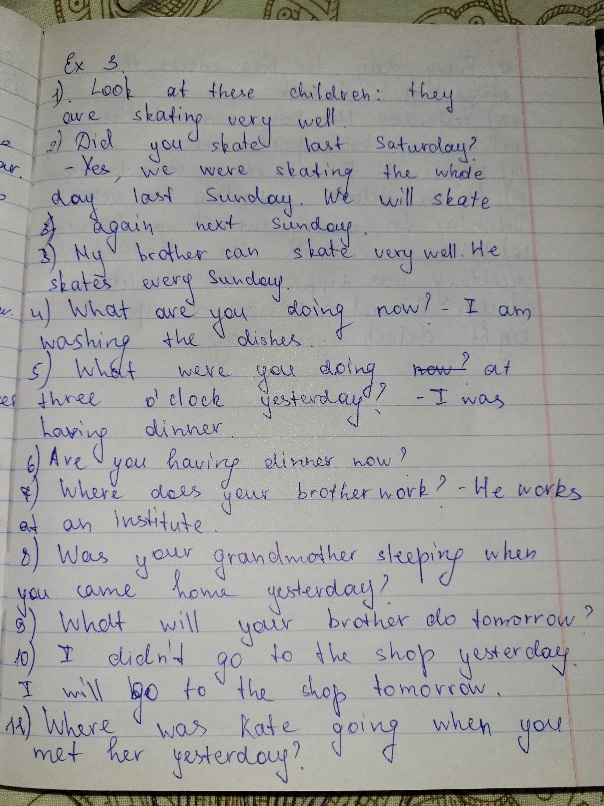 Ex 3.
1). Look at these children: they
are skating very well
2) Did you skate last Saturday?
- Yes, we were skating the whole
day last Sunday. We will skate
again next Sunday.
3) My brother can skate very well. He
skates every Sunday.
4) What are you doing now? - I am
washing the dishes.
5) What were you doing now? at
three o'clock yesterday? - I was
having dinner.
6) Are you having dinner now?
7) Where does your brother work? - He works
at an institute.
8) Was your grandmother sleeping when
you came home yesterday?
9) What will your brother do tomorrow?
10) I didn't go to the shop yesterday.
I will go to the shop tomorrow.
11) Where was Kate going when you
met her yesterday?